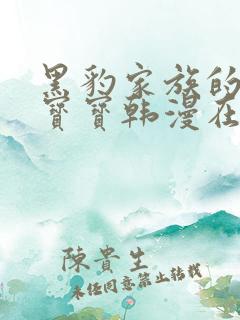 黑豹家族的
寶寶韩漫在
陳貴生
未经同意禁止转载